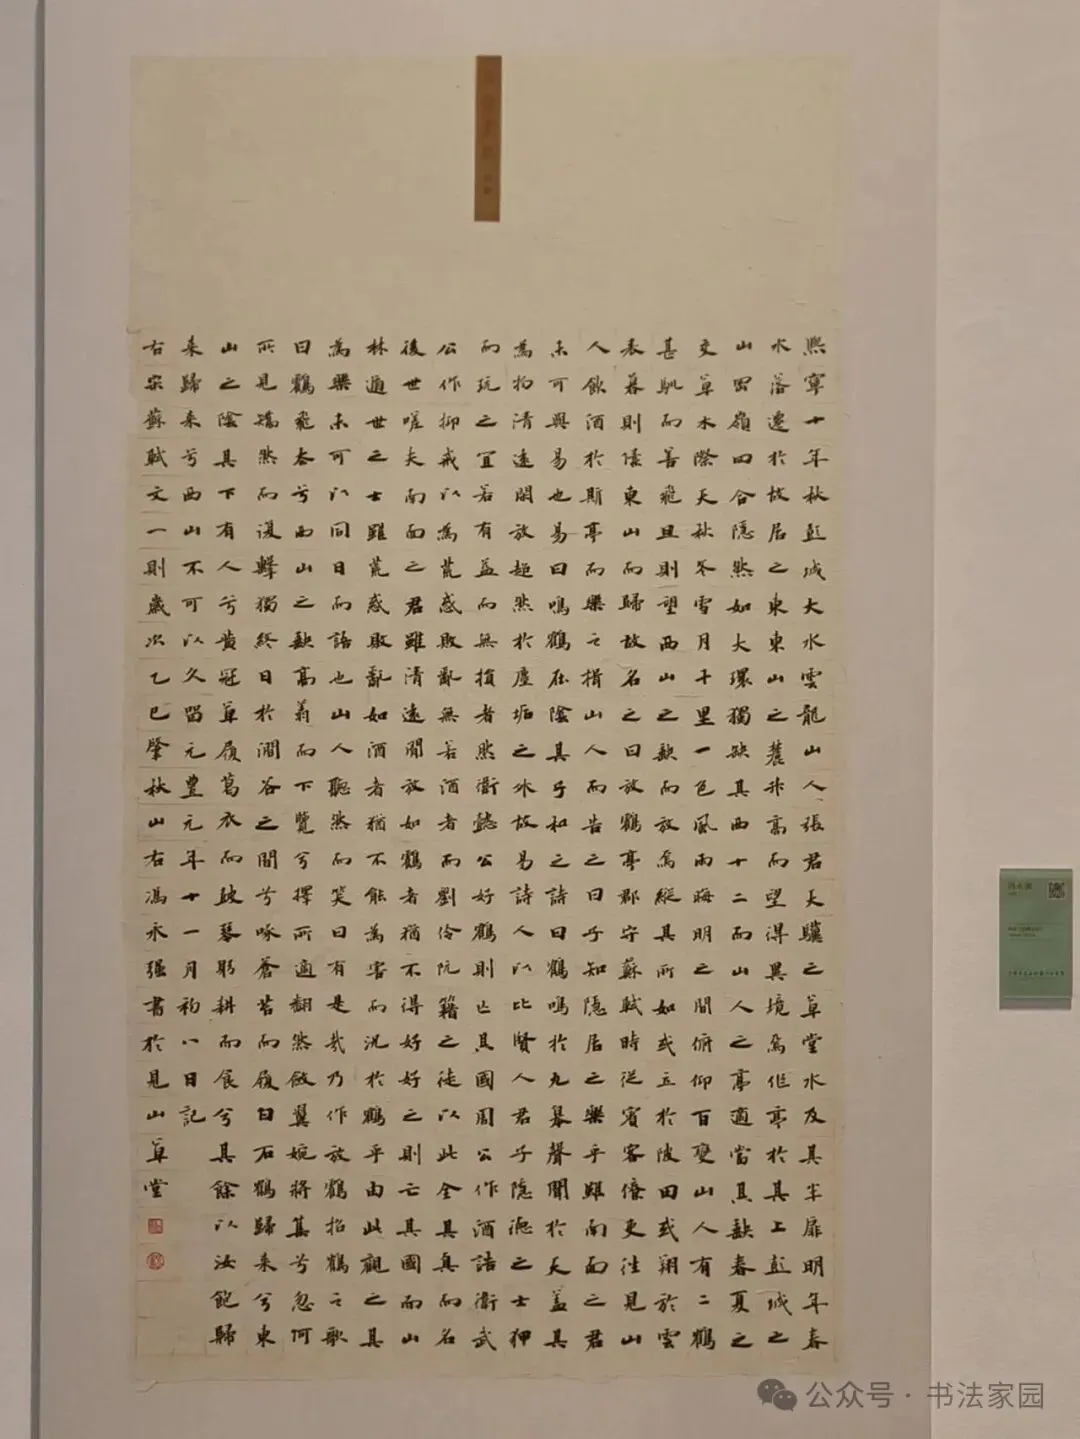 熙寧十年秋彭城大水雲龍山人張君天驥之草堂水及其半扉明年春
水落遷於故居之東東山之麓升高而望得異境焉作亭於其上彭城之
山岡嶺四合隱然如大環獨缺其西十二而山人之亭適當其缺春夏之
交草木際天秋冬雪月千里一色風雨晦明之間俯仰百變山人有二鶴
甚馴而善飛旦則望西山之缺而放焉縱其所如或立於陂田或翔於雲
表暮則傃東山而歸故名之曰放鶴亭郡守蘇軾時從賓客僚吏往見山
人飲酒於斯亭而樂之揖山人而告之曰子知隱居之樂乎雖南面之君
未可與易也易曰鳴鶴在陰其子和之詩曰鶴鳴於九皋聲聞於天蓋其
為物清遠閑放超然於塵垢之外故易詩人以比賢人君子隱德之士狎
而玩之宜若有益而無損者然衛懿公好鶴則亡其國周公作酒誥衛武
公作抑戒以為荒惑敗亂無若酒者而劉伶阮籍之徒以此全其真而名
後世嗟夫南面之君雖清遠閑放如鶴者猶不得好好之則亡其國而山
林遁世之士雖荒惑敗亂如酒者猶不能為害而況於鶴乎由此觀之其
為樂未可以同日而語也山人聽然而笑曰有是哉乃作放鶴招鶴之歌
曰鶴飛去兮西山之缺高翔而下覽兮擇所適翻然斂翼婉將集兮忽何
所見矯然而復擊獨終日於澗谷之間兮啄蒼苔而履白石鶴歸來兮東
山之陰其下有人兮黃冠草履葛衣而鼓琴躬耕而食兮其餘以汝飽歸
來歸來兮西山不可以久留元豐元年十一月初八日記
右宋蘇軾文一則歲次乙巳肇秋山右馮永强書於見山草堂
公众号·书法家园